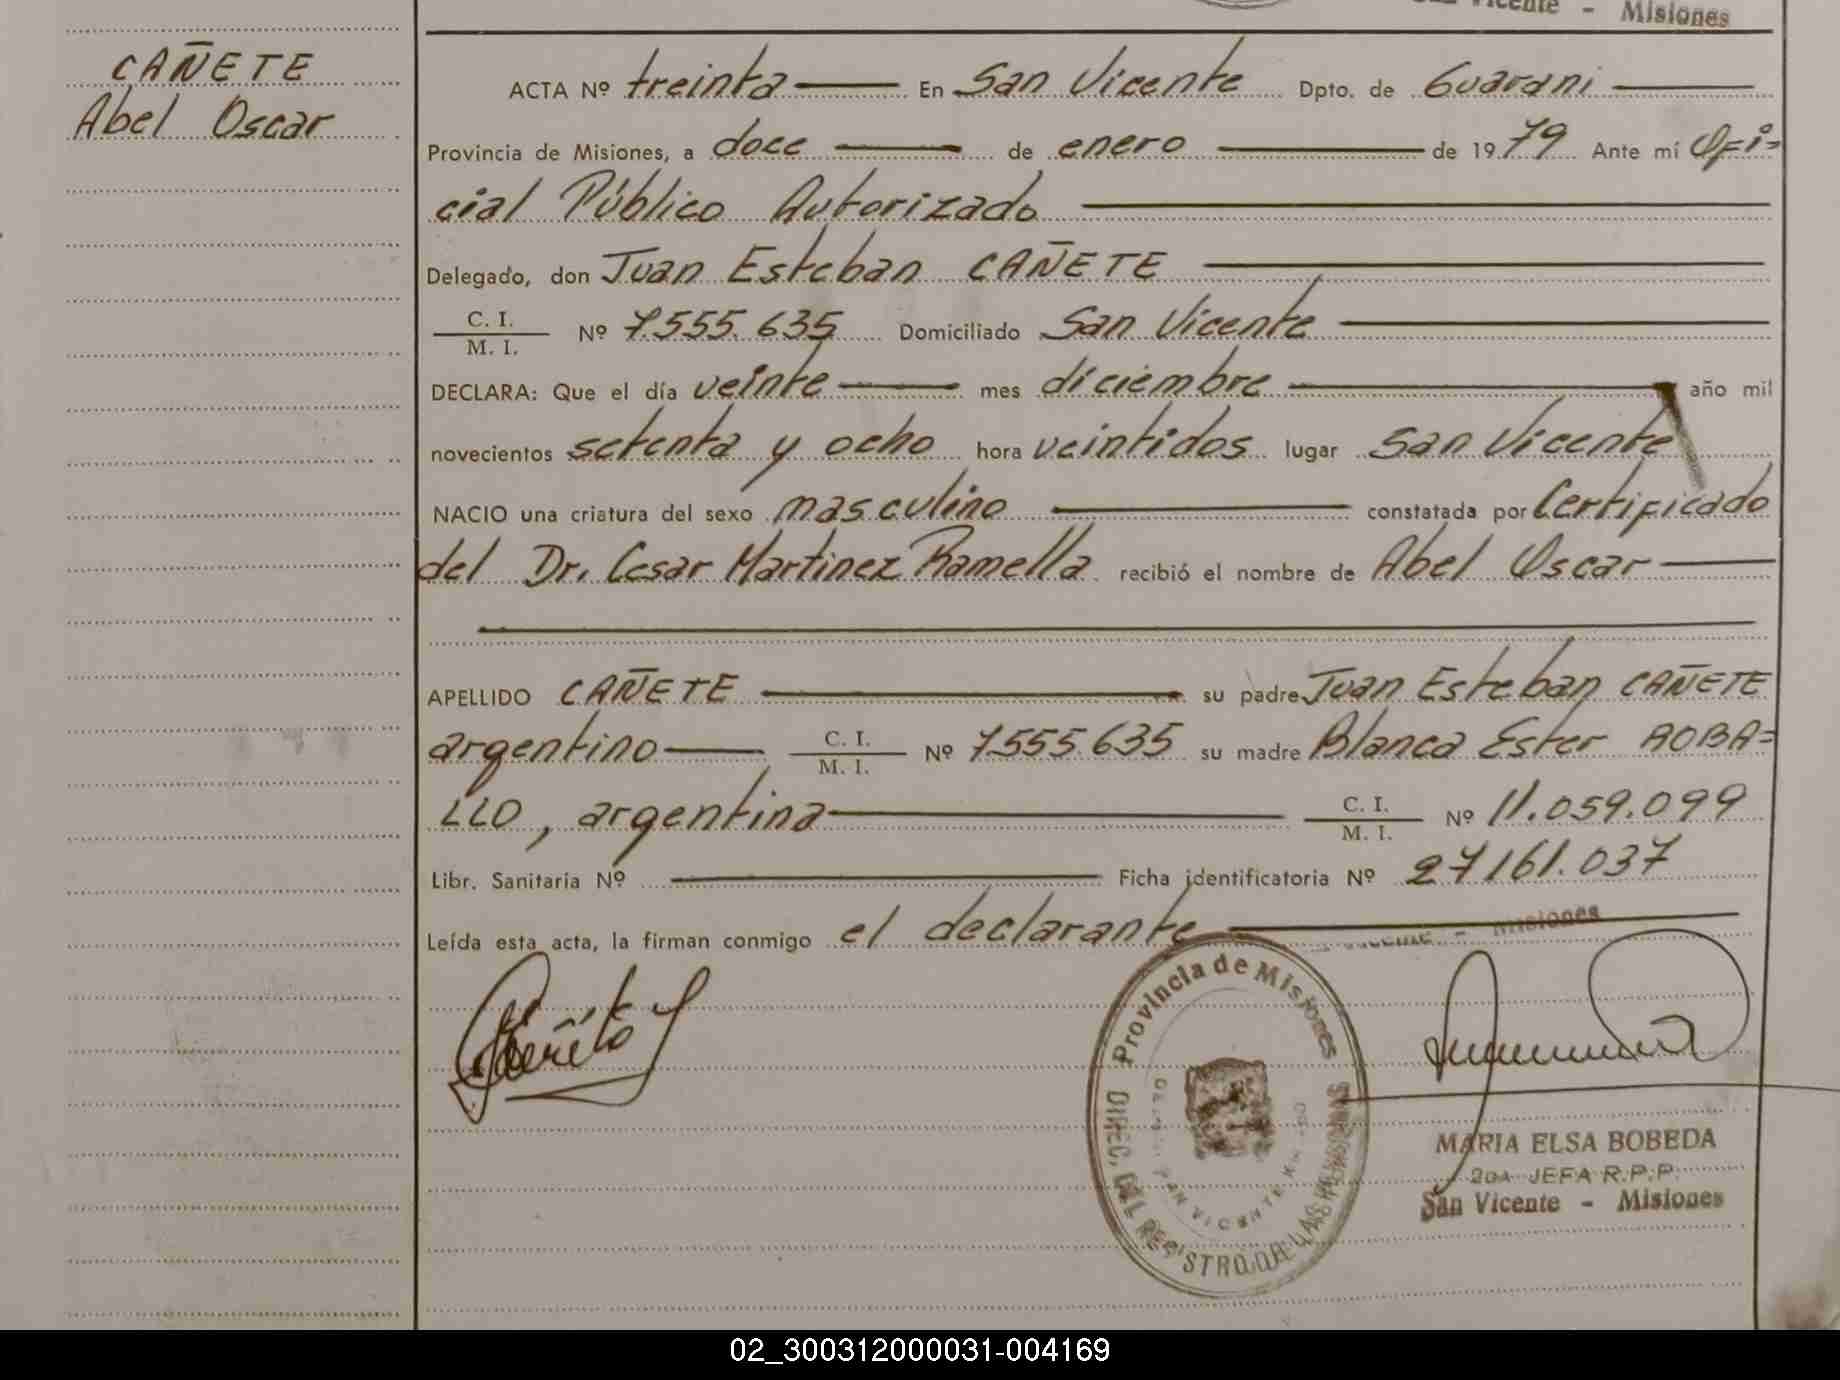 San Vicente - Misiones
CAÑETE
Abel Oscar
ACTA Nº treinta En San Vicente Dpto. de Guarani
Provincia de Misiones, a doce de enero de 1979 Ante mí Ofi=
cial Público Autorizado
Delegado, don Juan Esteban CAÑETE
C. I.
M. I. Nº 7.555.635 Domiciliado San Vicente
DECLARA: Que el día veinte mes diciembre año mil
novecientos setenta y ocho hora veintidos lugar San Vicente
NACIO una criatura del sexo masculino constatada por Certificado
del Dr. Cesar Martinez Ramella recibió el nombre de Abel Oscar
APELLIDO CAÑETE su padre Juan Esteban CAÑETE
argentino C. I.
M. I. Nº 7.555.635 su madre Blanca Ester ROBA=
LLO, argentina C. I.
M. I. Nº 11.059.099
Libr. Sanitaria Nº Ficha identificatoria Nº 27161.037
Leída esta acta, la firman conmigo el declarante
Misiones
Provincia de Misiones
DIREC. DEL REGISTRO DE LAS PERSONAS
SAN VICENTE
MARIA ELSA BOBEDA
2DA JEFA R.P.P.
San Vicente - Misiones
02_300312000031-004169